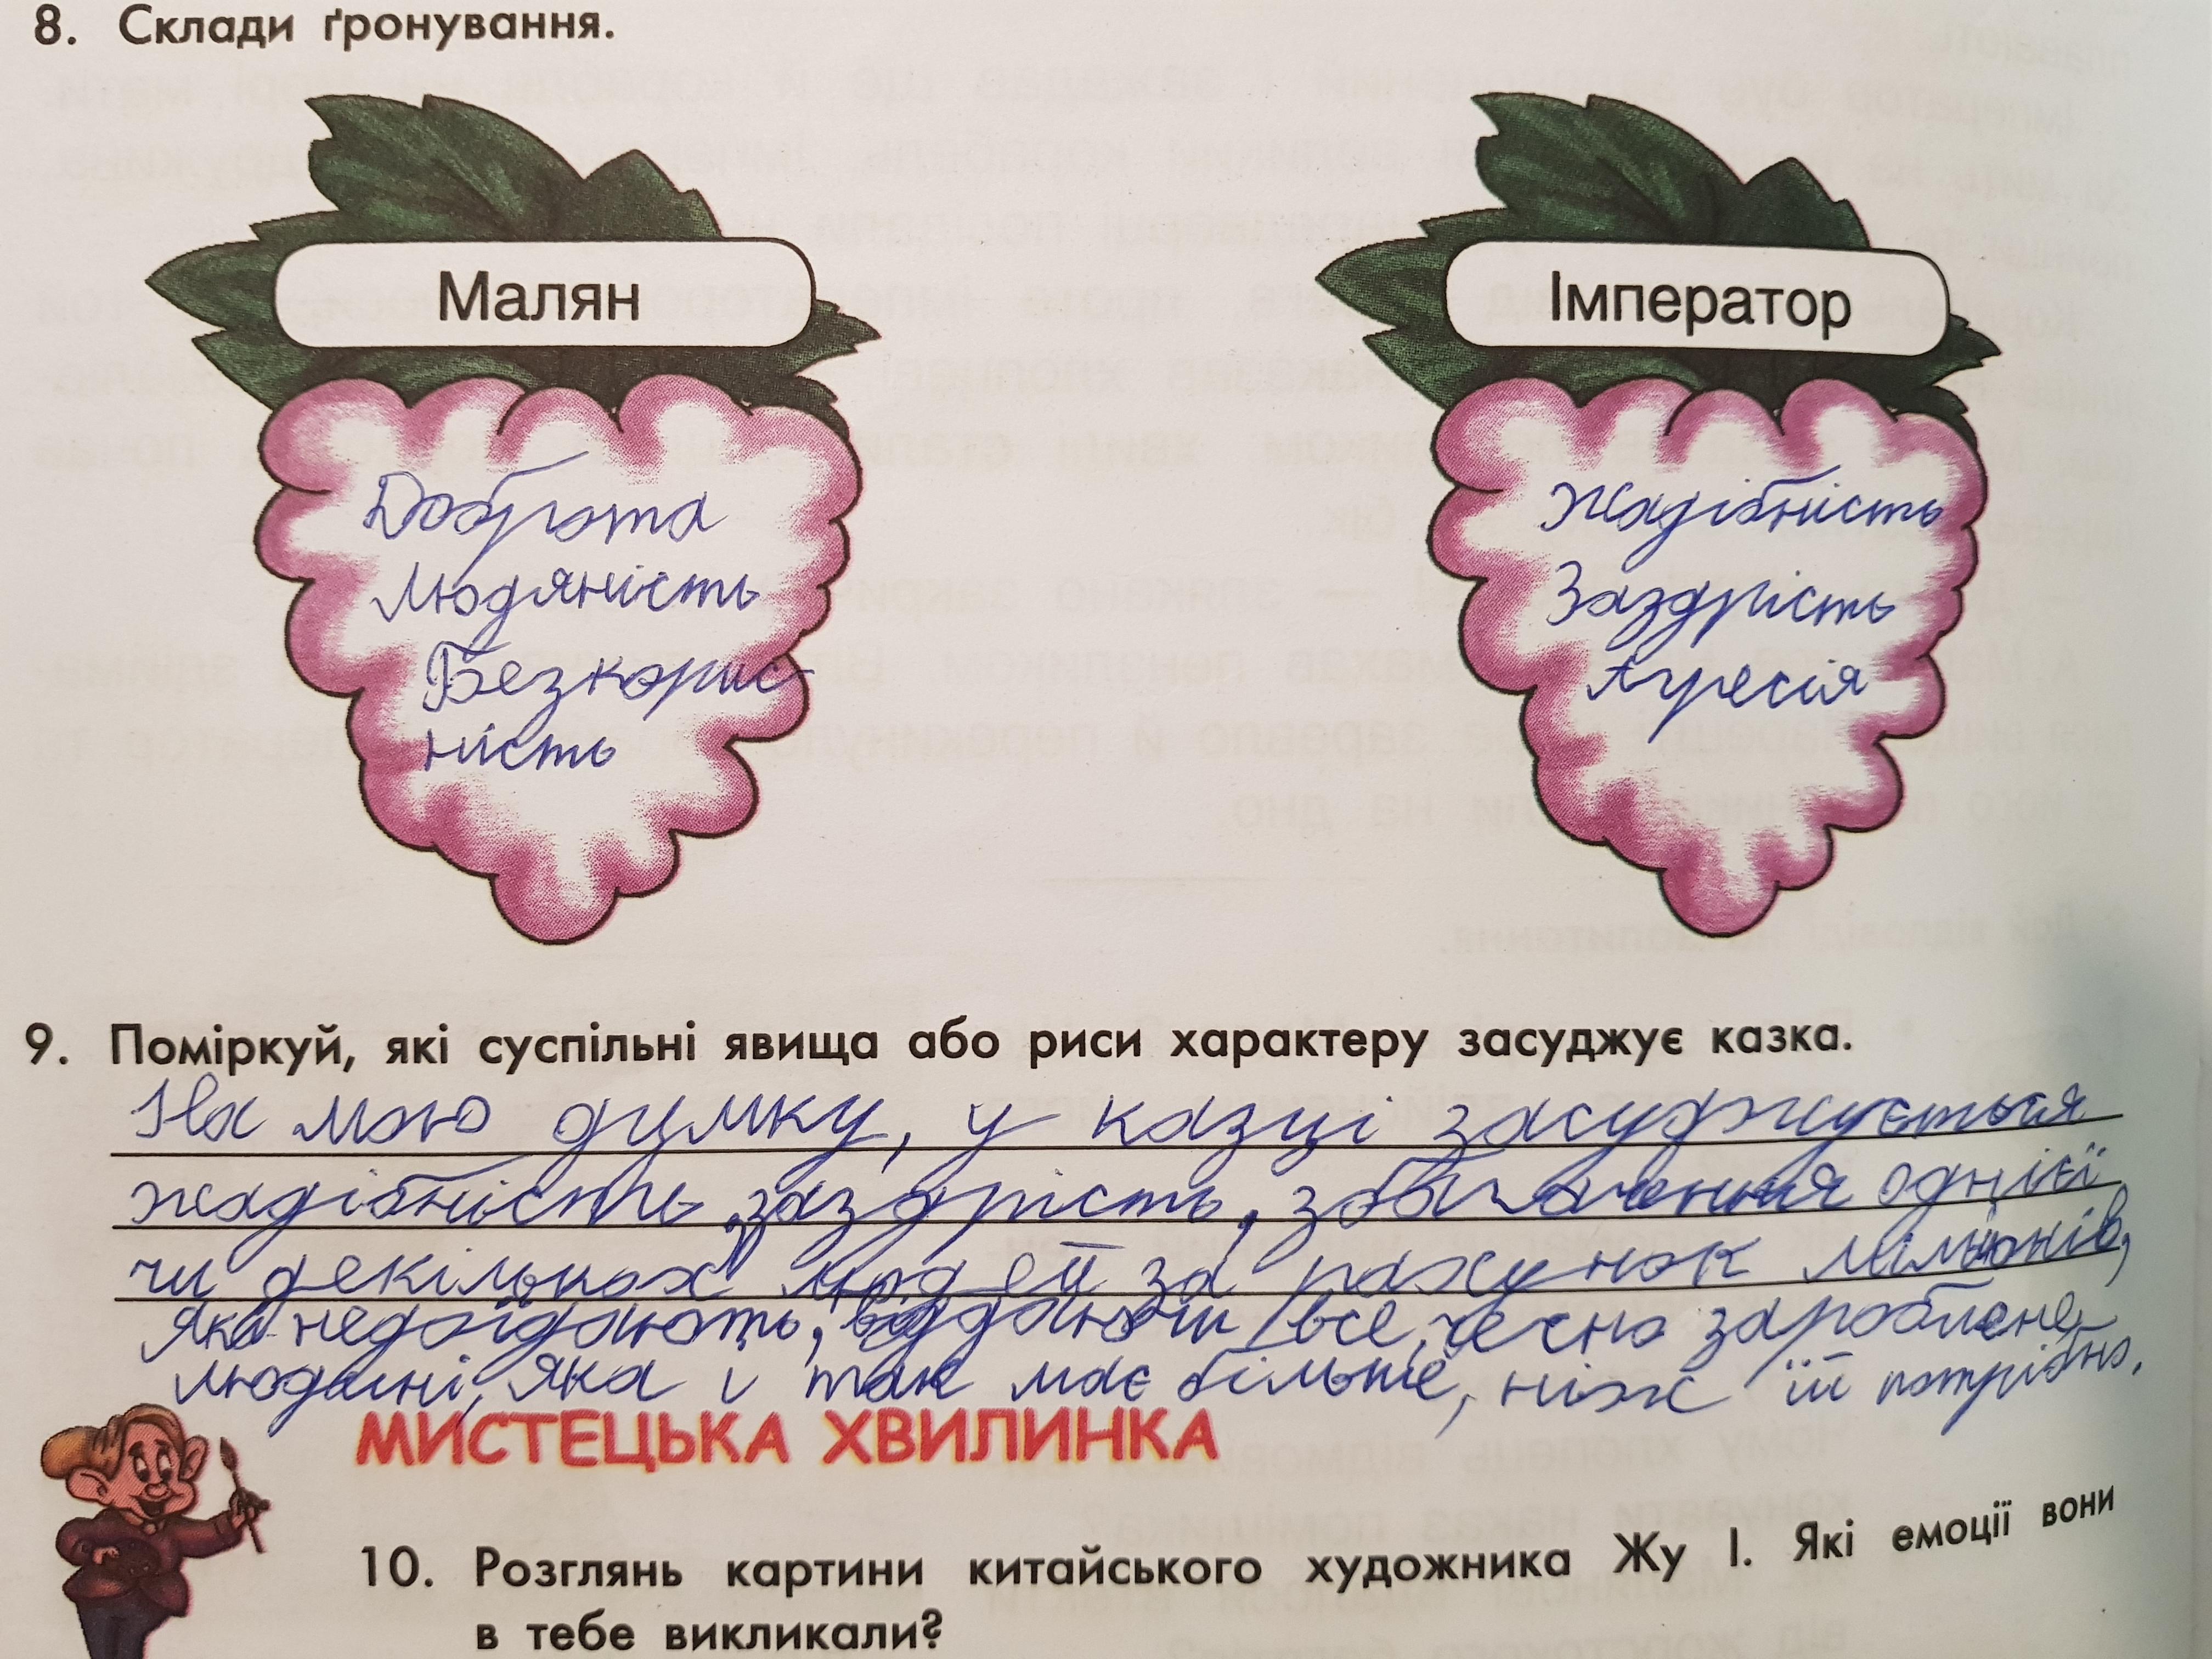 8. Склади ґронування.
Малян
Доброта
Людяність
Безкорис-
ність
Імператор
Жадібність
Заздрість
Агресія
9. Поміркуй, які суспільні явища або риси характеру засуджує казка.
На мою думку, у казці засуджується
жадібність, заздрість, збагачення однієї
чи декількох людей за рахунок мільйонів,
які недоїдають, віддаючи все, чесно зароблене
людині, яка і так має більше, ніж їй потрібно.
МИСТЕЦЬКА ХВИЛИНКА
10. Розглянь картини китайського художника Жу І. Які емоції вони
в тебе викликали?